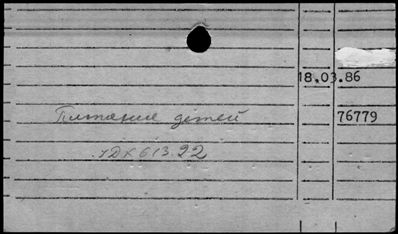 18.03.86
Питание детей
76779
УДК 613.22